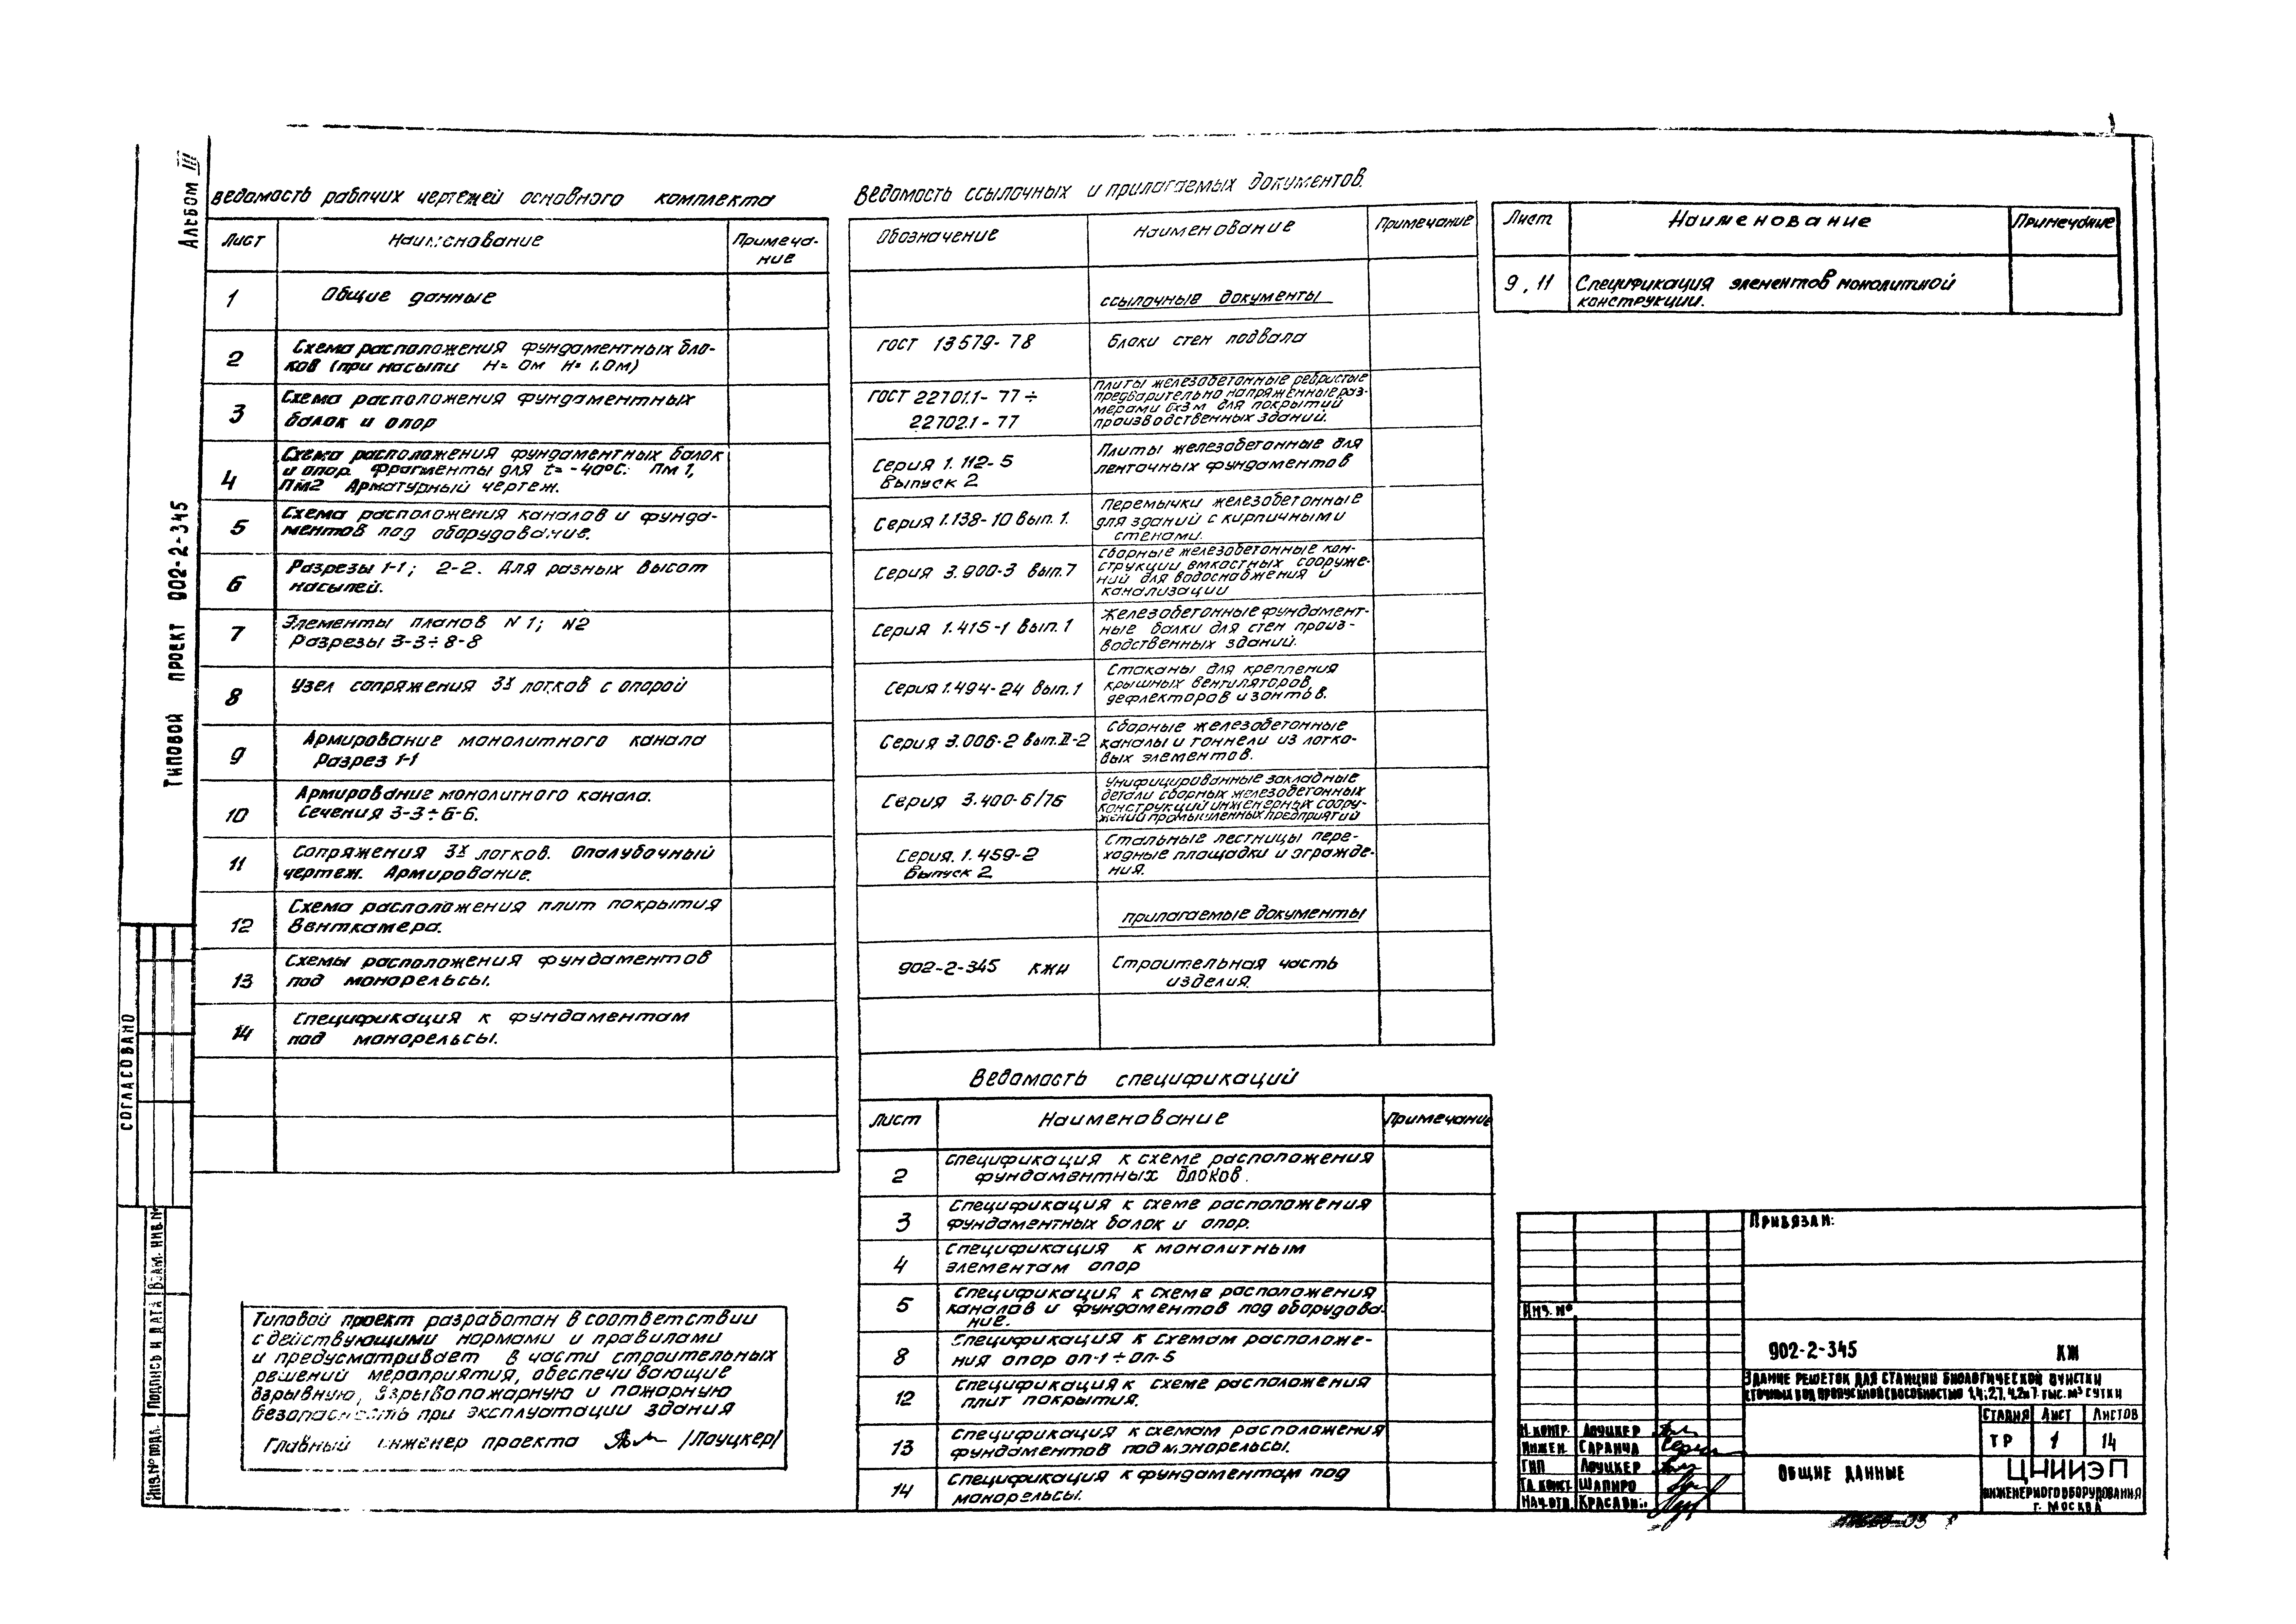 Альбом III
Типовой проект 902-2-345
СОГЛАСОВАНО
ВЗАМ. ИНВ.№
ПОДПИСЬ И ДАТА
ИНВ.№ ПОДЛ.
Ведомость рабочих чертежей основного комплекта
Лист Наименование Примеча-
ние
1 Общие данные
2 Схема расположения фундаментных бло-
ков (при насыпи Н= 0м Н= 1.0м)
3 Схема расположения фундаментных
балок и опор
4 Схема расположения фундаментных балок
и опор. Фрагменты для t= -40°С. Пм 1,
Пм2 Арматурный чертеж.
5 Схема расположения каналов и фунда-
ментов под оборудование.
6 Разрезы 1-1; 2-2. Для разных высот
насыпей.
7 Элементы планов N 1; N2
Разрезы 3-3÷8-8
8 Узел сопряжения 3х лотков с опорой
9 Армирование монолитного канала
Разрез 1-1
10 Армирование монолитного канала.
Сечения 3-3÷6-6.
11 Сопряжения 3х лотков. Опалубочный
чертеж. Армирование.
12 Схема расположения плит покрытия
Венткамера.
13 Схемы расположения фундаментов
под монорельсы.
14 Спецификация к фундаментам
под монорельсы.
Типовой проект разработан в соответствии
с действующими нормами и правилами
и предусматривает в части строительных
решений мероприятия, обеспечивающие
взрывную, взрывопожарную и пожарную
безопасность при эксплуатации здания
Главный инженер проекта /Лоуцкер/
Ведомость ссылочных и прилагаемых документов.
Обозначение Наименование Примечание
ссылочные документы
ГОСТ 13579-78 Блоки стен подвала
ГОСТ 22701.1-77÷
22702.1-77
Плиты железобетонные ребристые
предварительно напряженные раз-
мерами 6х3м для покрытий
производственных зданий.
Серия 1.112-5
Выпуск 2
Плиты железобетонные для
ленточных фундаментов
Серия 1.138-10 вып. 1.
Перемычки железобетонные
для зданий с кирпичными
стенами.
Серия 3.900-3 вып.7
Сборные железобетонные кон-
струкции емкостных сооруже-
ний для водоснабжения и
канализации
Серия 1.415-1 вып. 1
Железобетонные фундамент-
ные балки для стен произ-
водственных зданий.
Серия 1.494-24 вып. 1
Стаканы для крепления
крышных вентиляторов,
дефлекторов и зонтов.
Серия 3.006-2 вып.II-2
Сборные железобетонные
каналы и тоннели из лотко-
вых элементов.
Серия 3.400-6/76
Унифицированные закладные
детали сборных железобетонных
конструкций инженерных соору-
жений промышленных предприятий
Серия. 1.459-2
Выпуск 2
Стальные лестницы пере-
ходные площадки и огражде-
ния.
прилагаемые документы
902-2-345 КЖИ Строительная часть
изделия.
Ведомость спецификаций
Лист Наименование Примечание
2 Спецификация к схеме расположения
фундаментных блоков.
3 Спецификация к схеме расположения
фундаментных балок и опор.
4 Спецификация к монолитным
элементам опор
5 Спецификация к схеме расположения
каналов и фундаментов под оборудова-
ние.
8 Спецификация к схемам расположе-
ния опор оп-1÷оп-5
12 Спецификация к схеме расположения
плит покрытия.
13 Спецификация к схемам расположения
фундаментов под монорельсы.
14 Спецификация к фундаментам под
монорельсы.
Лист Наименование Примечание
9, 11 Спецификация элементов монолитной
конструкции.
Привязан:
Инв. №
902-2-345 КЖ
Здание решеток для станции биологической очистки
сточных вод пропускной способностью 1,4; 2,7; 4,2 и 7 тыс. м³ сутки
Стадия Лист Листов
ТР 1 14
Н. контр. Лоуцкер
Инжен. Саранча
ГИП Лоуцкер
Гл. конст. Шапиро
Нач. отд.
Общие данные
ЦНИИЭП
инженерного оборудования
г. Москва